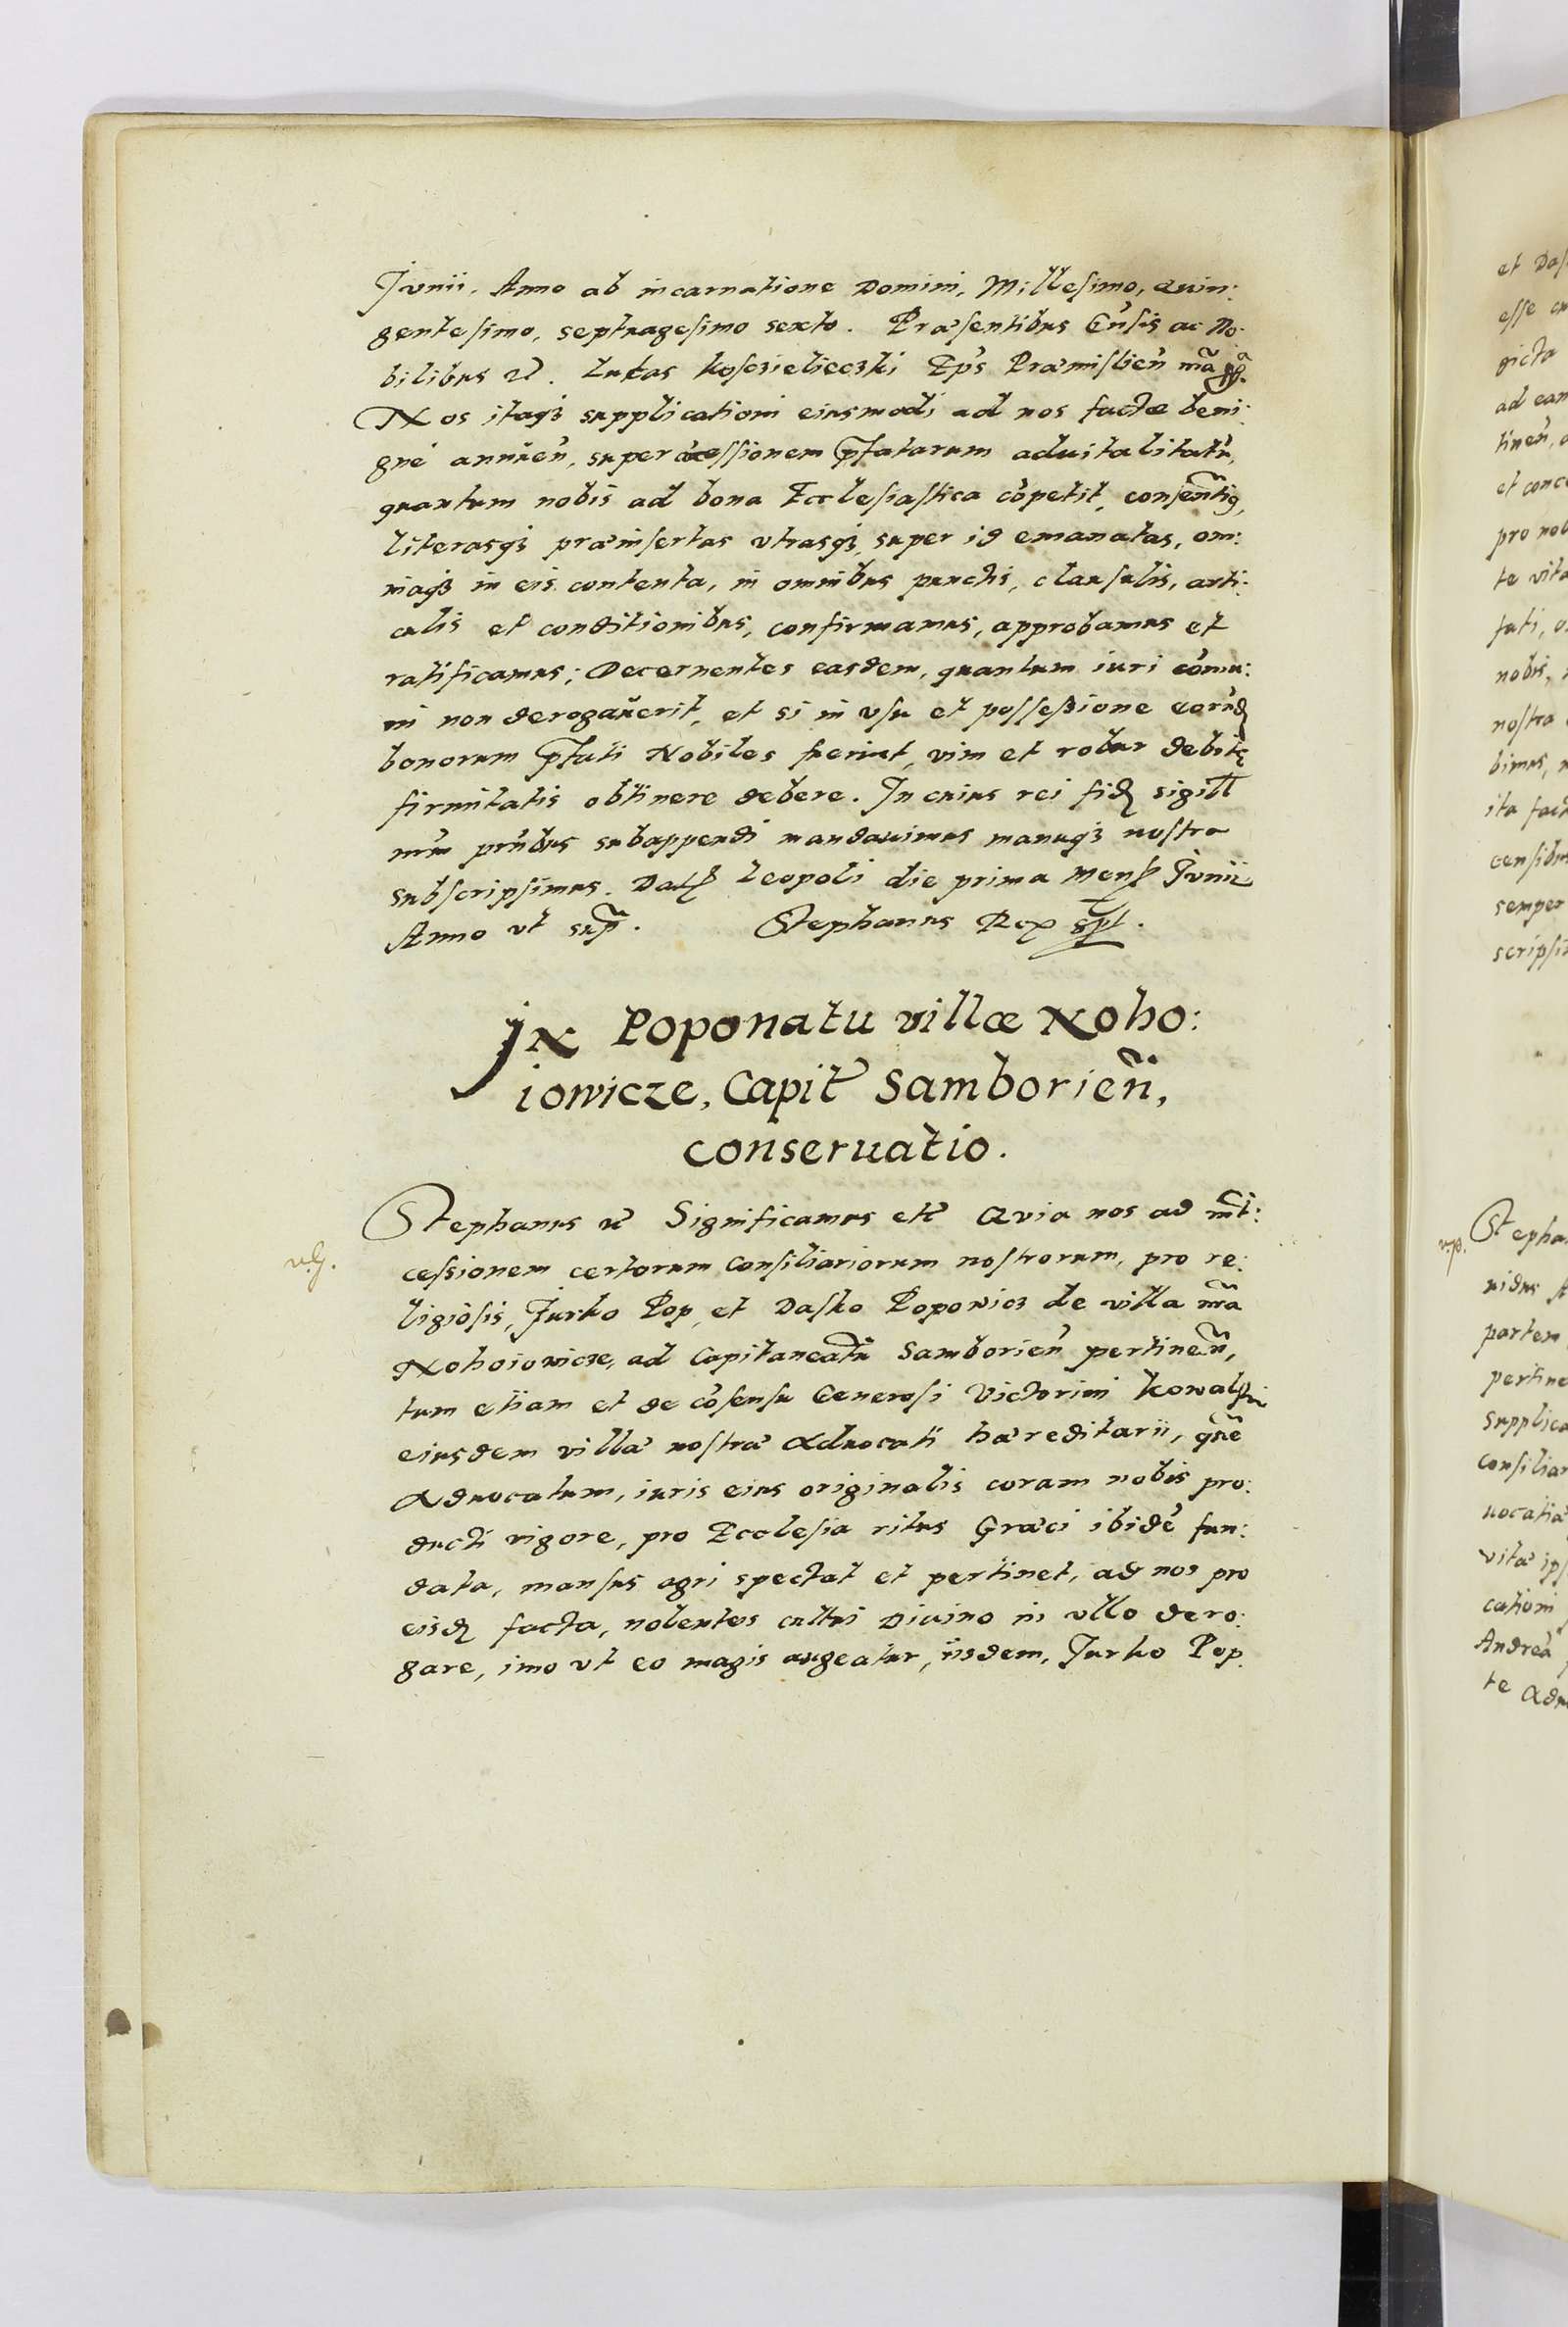 Junii, Anno ab incarnatione Domini, Millesimo, Quin:
gentesimo, septuagesimo sexto. Præsentibus Gñsis ac No:
bilibus etc. Lucas Kosczielieczki Ep̃s Præmislień mã
Nos itaq3 supplicationi eiusmodi ad nos factæ beni:
gnè annueń, super cessionem p̃fatarum aduitalitatũ,
quantum nobis ad bona Ecclesiastica cõpetit, consentiẽ,
literasq3 præinsertas vtrasq3, super id emanatas, om:
niaq3 in eis contenta, in omnibus punctis, clausulis, arti:
culis et conditionibus, confirmamus, approbamus et
ratificamus; Decernentes easdem, quantum iuri cõmu:
ni non derogauerit, et si in vsu et possessione eorũd
bonorum p̃fati Nobiles fuerint, vim et robur debitę
firmitatis obtinere debere. In cuius rei fid sigill
nr̃m pñtibus subappendi mandauimus manuq3 nostra
subscripsimus. Dat Leopoli die prima Mens Junii
Anno vt sup̃. Stephanus Rex spt.
JN Poponatu villæ Noho:
iowicze, Capit Samborień,
conseruatio.
Stephanus etc Significamus etc Quia nos ad int̃:
cessionem certorum Consiliariorum nostrorum, pro re:
ligiosis, Jurko Pop, et Dasko Popowicz de villa nr̃a
Nohoiowicze, ad Capitaneatũ Samborień pertineń,
tum etiam et de cõsensu Generosi Victorini Kowalski
eiusdem villæ nostræ Aduocati hæreditarii, que
Aduocatum, iuris eius originalis coram nobis pro:
ducti vigore, pro Ecclesia ritus Græci ibidẽ fun:
data, mansus agri spectat et pertinet, ad nos pro
eisd facta, nolentes cultui Diuino in vllo dero:
gare, imo vt eo magis augeatur, iisdem, Jurko Pop
et Das
esse
ad eam
tineń,
et conc
pro nob
te vita
nobis,
nostra
bimus,
ita fact
censibus
semper
Stepha
uidus
partem
pertine
supplica
Consiliar
uocatiæ
vitæ ips
cationi
Andreæ
te Adu